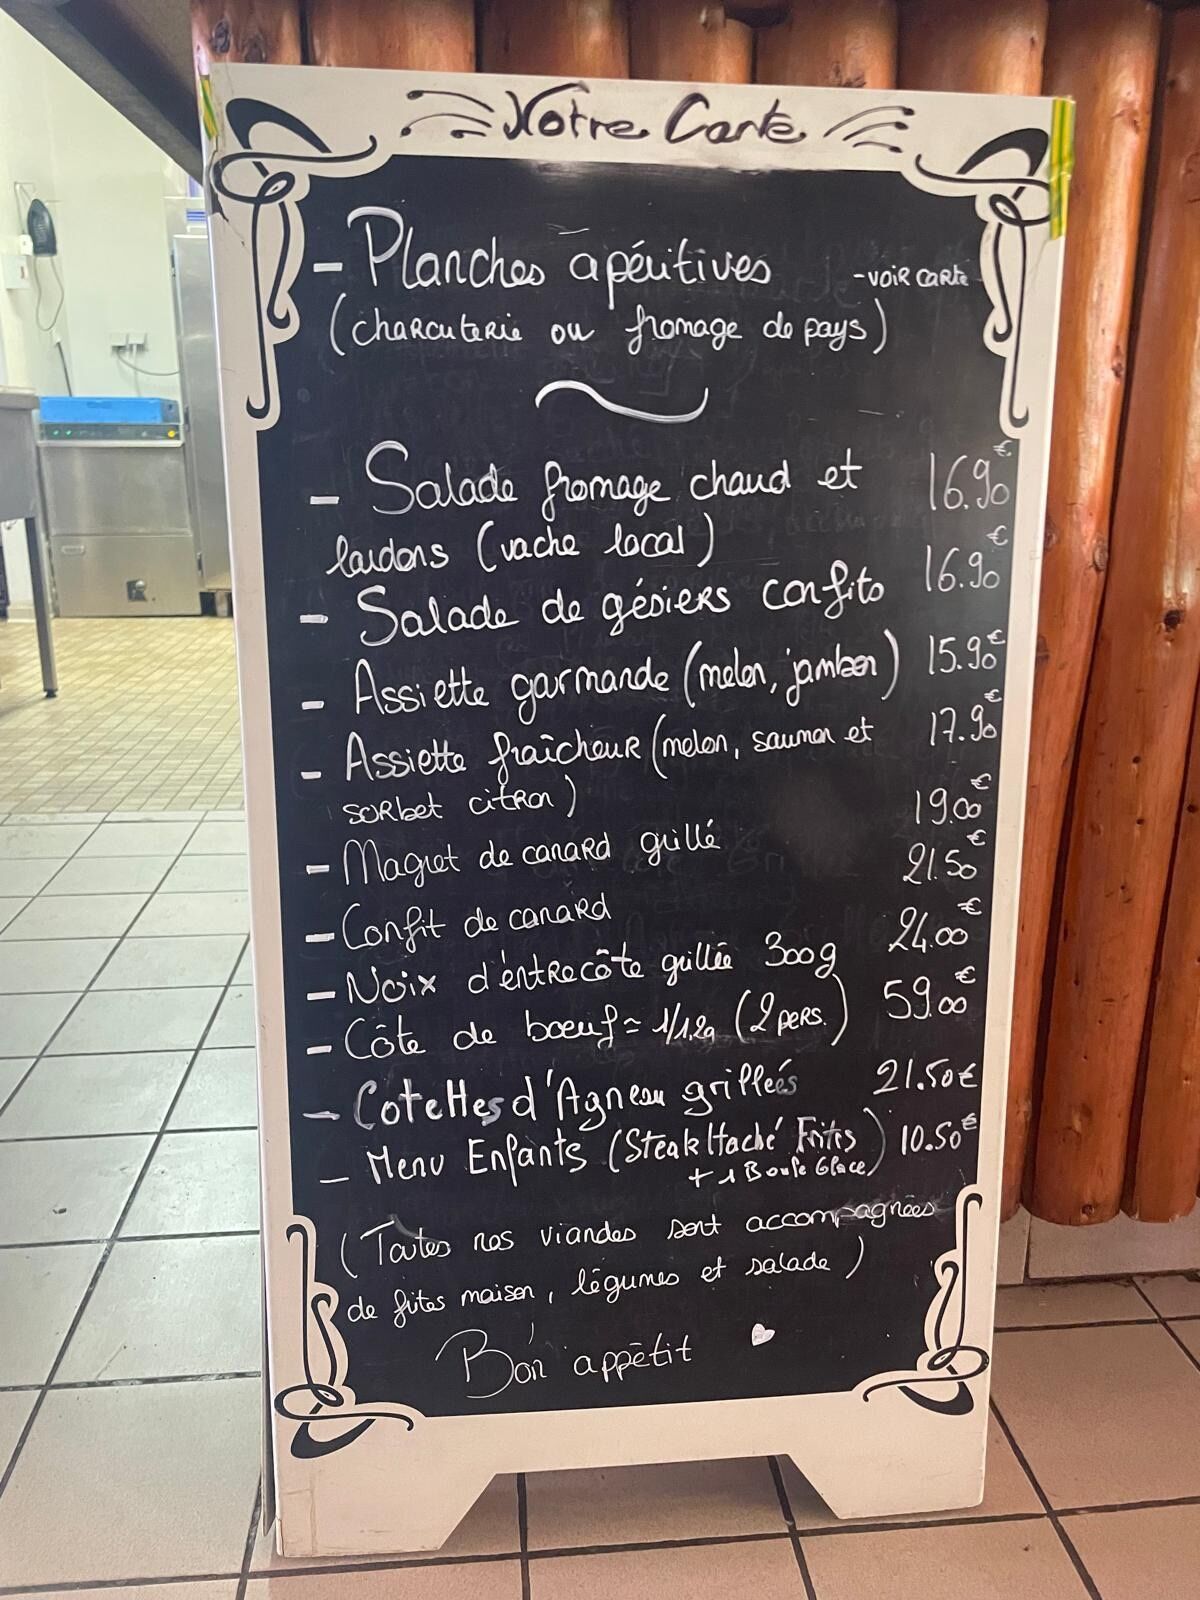 Notre Carte
- Planches apéritives - voir carte
(charcuterie ou fromage de pays)
- Salade fromage chaud et 16.90€
lardons (vache local)
- Salade de gésiers confits 16.90€
- Assiette gourmande (melon, jambon) 15.90€
- Assiette fraîcheur (melon, saumon et 17.90€
sorbet citron)
- Magret de canard grillé 19.00€
- Confit de canard 21.50€
- Noix d'entrecôte grillée 300g 24.00€
- Côte de boeuf ≈ 1/1,2g (2 pers.) 59.00€
- Cotettes d'Agneau grillées 21.50€
- Menu Enfants (Steak Haché Frites 10.50€
+ 1 Boule Glace)
(Toutes nos viandes sont accompagnées
de frites maison, légumes et salade)
Bon appétit